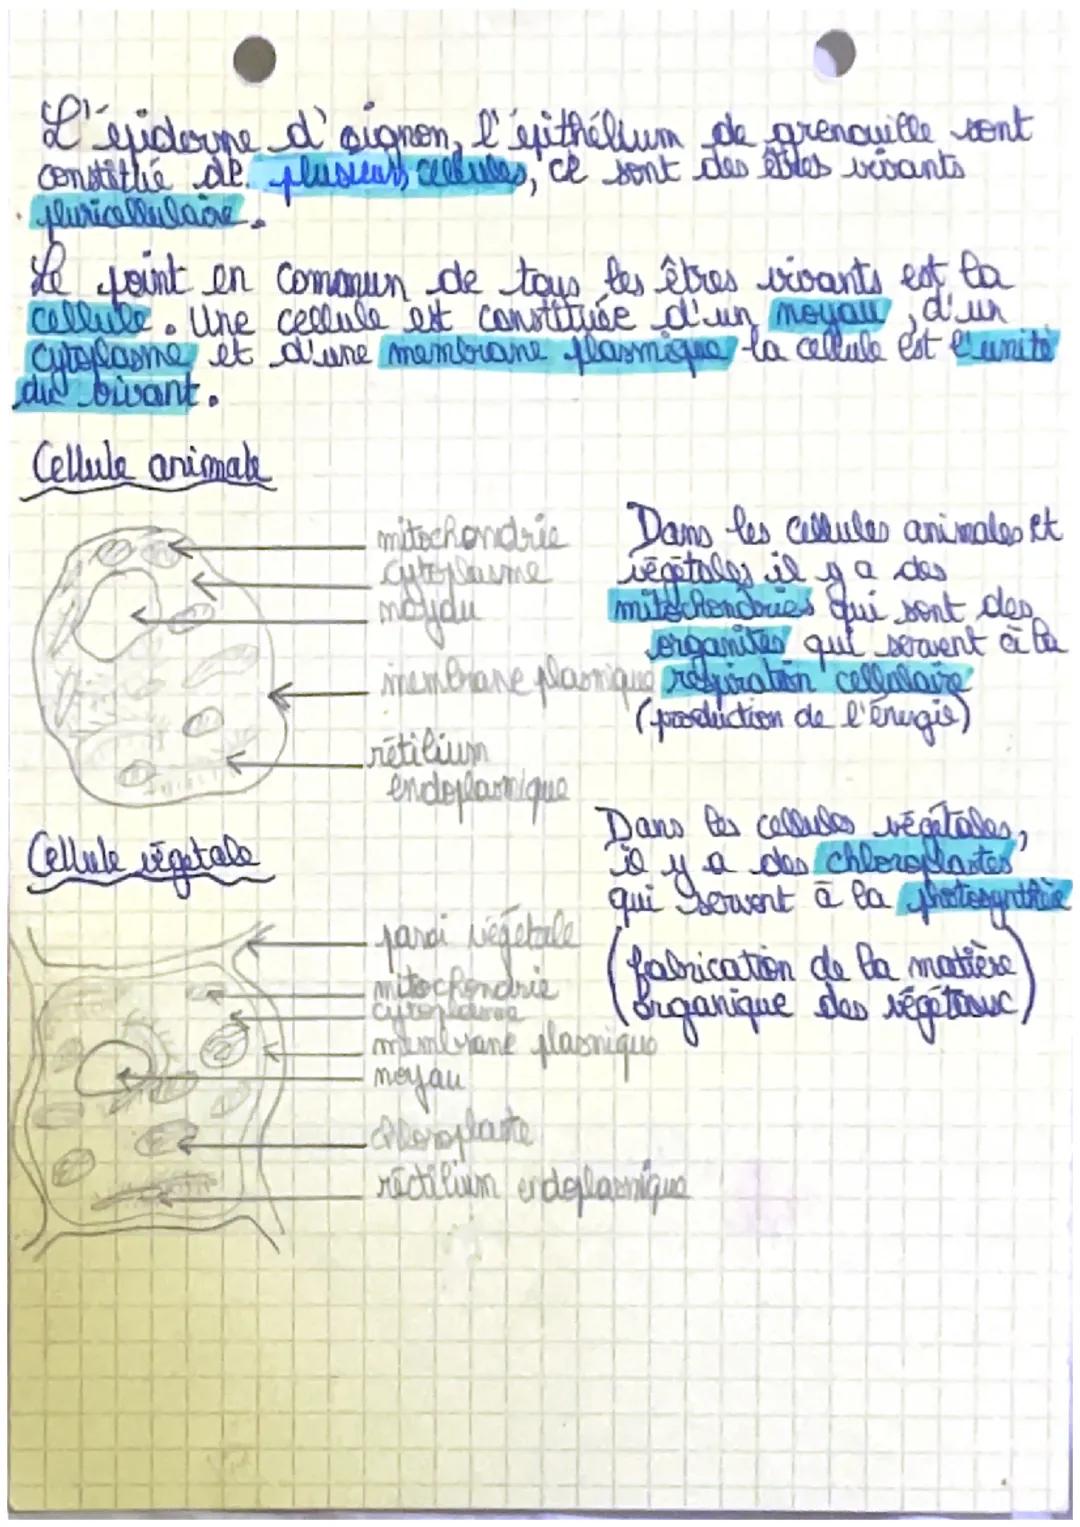 L'épiderme d'oignon, l'épithélium de grenouille sont
constitué de plusieurs cellules, ce sont des êtres vivants
pluricellulaire.
Le point en commun de tous les êtres vivants est la
cellule. Une cellule est constituée d'un noyau, d'un
cytoplasme et d'une membrane plasmique la cellule est l'unité
du vivant.
Cellule animale
mitochondrie
cytoplasme
noyau
membrane plasmique
rétilium
endoplasmique
Dans les cellules animales et
végétales il y a des
mitochondries qui sont des
organites qui servent à la
respiration cellulaire
(production de l'énergie)
Cellule végétale
paroi végétale
mitochondrie
cytoplasme
membrane plasmique
noyau
chloroplaste
réctilium endoplasmique
Dans les cellules végétales,
il y a des chloroplastes
qui servent à la
(fabrication de la matière
organique des végétaux)